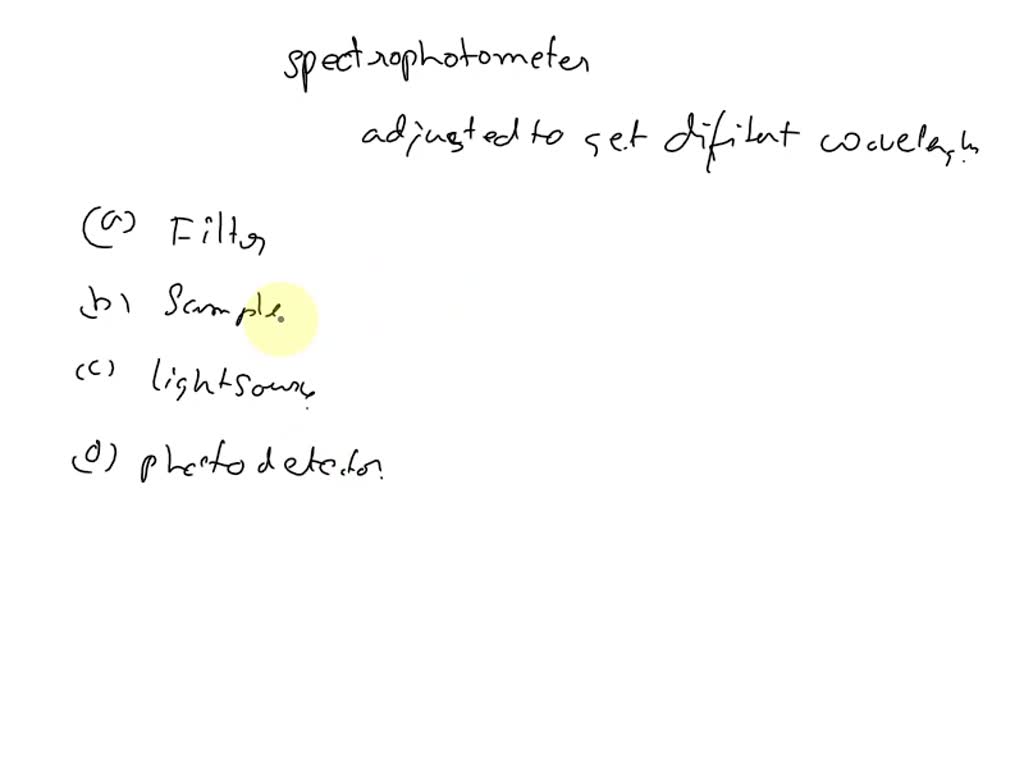 spectrophotometer
adjusted to get difilent wavelength
(a) Filter
(b) Sample
(c) lightsource
(d) photodetector